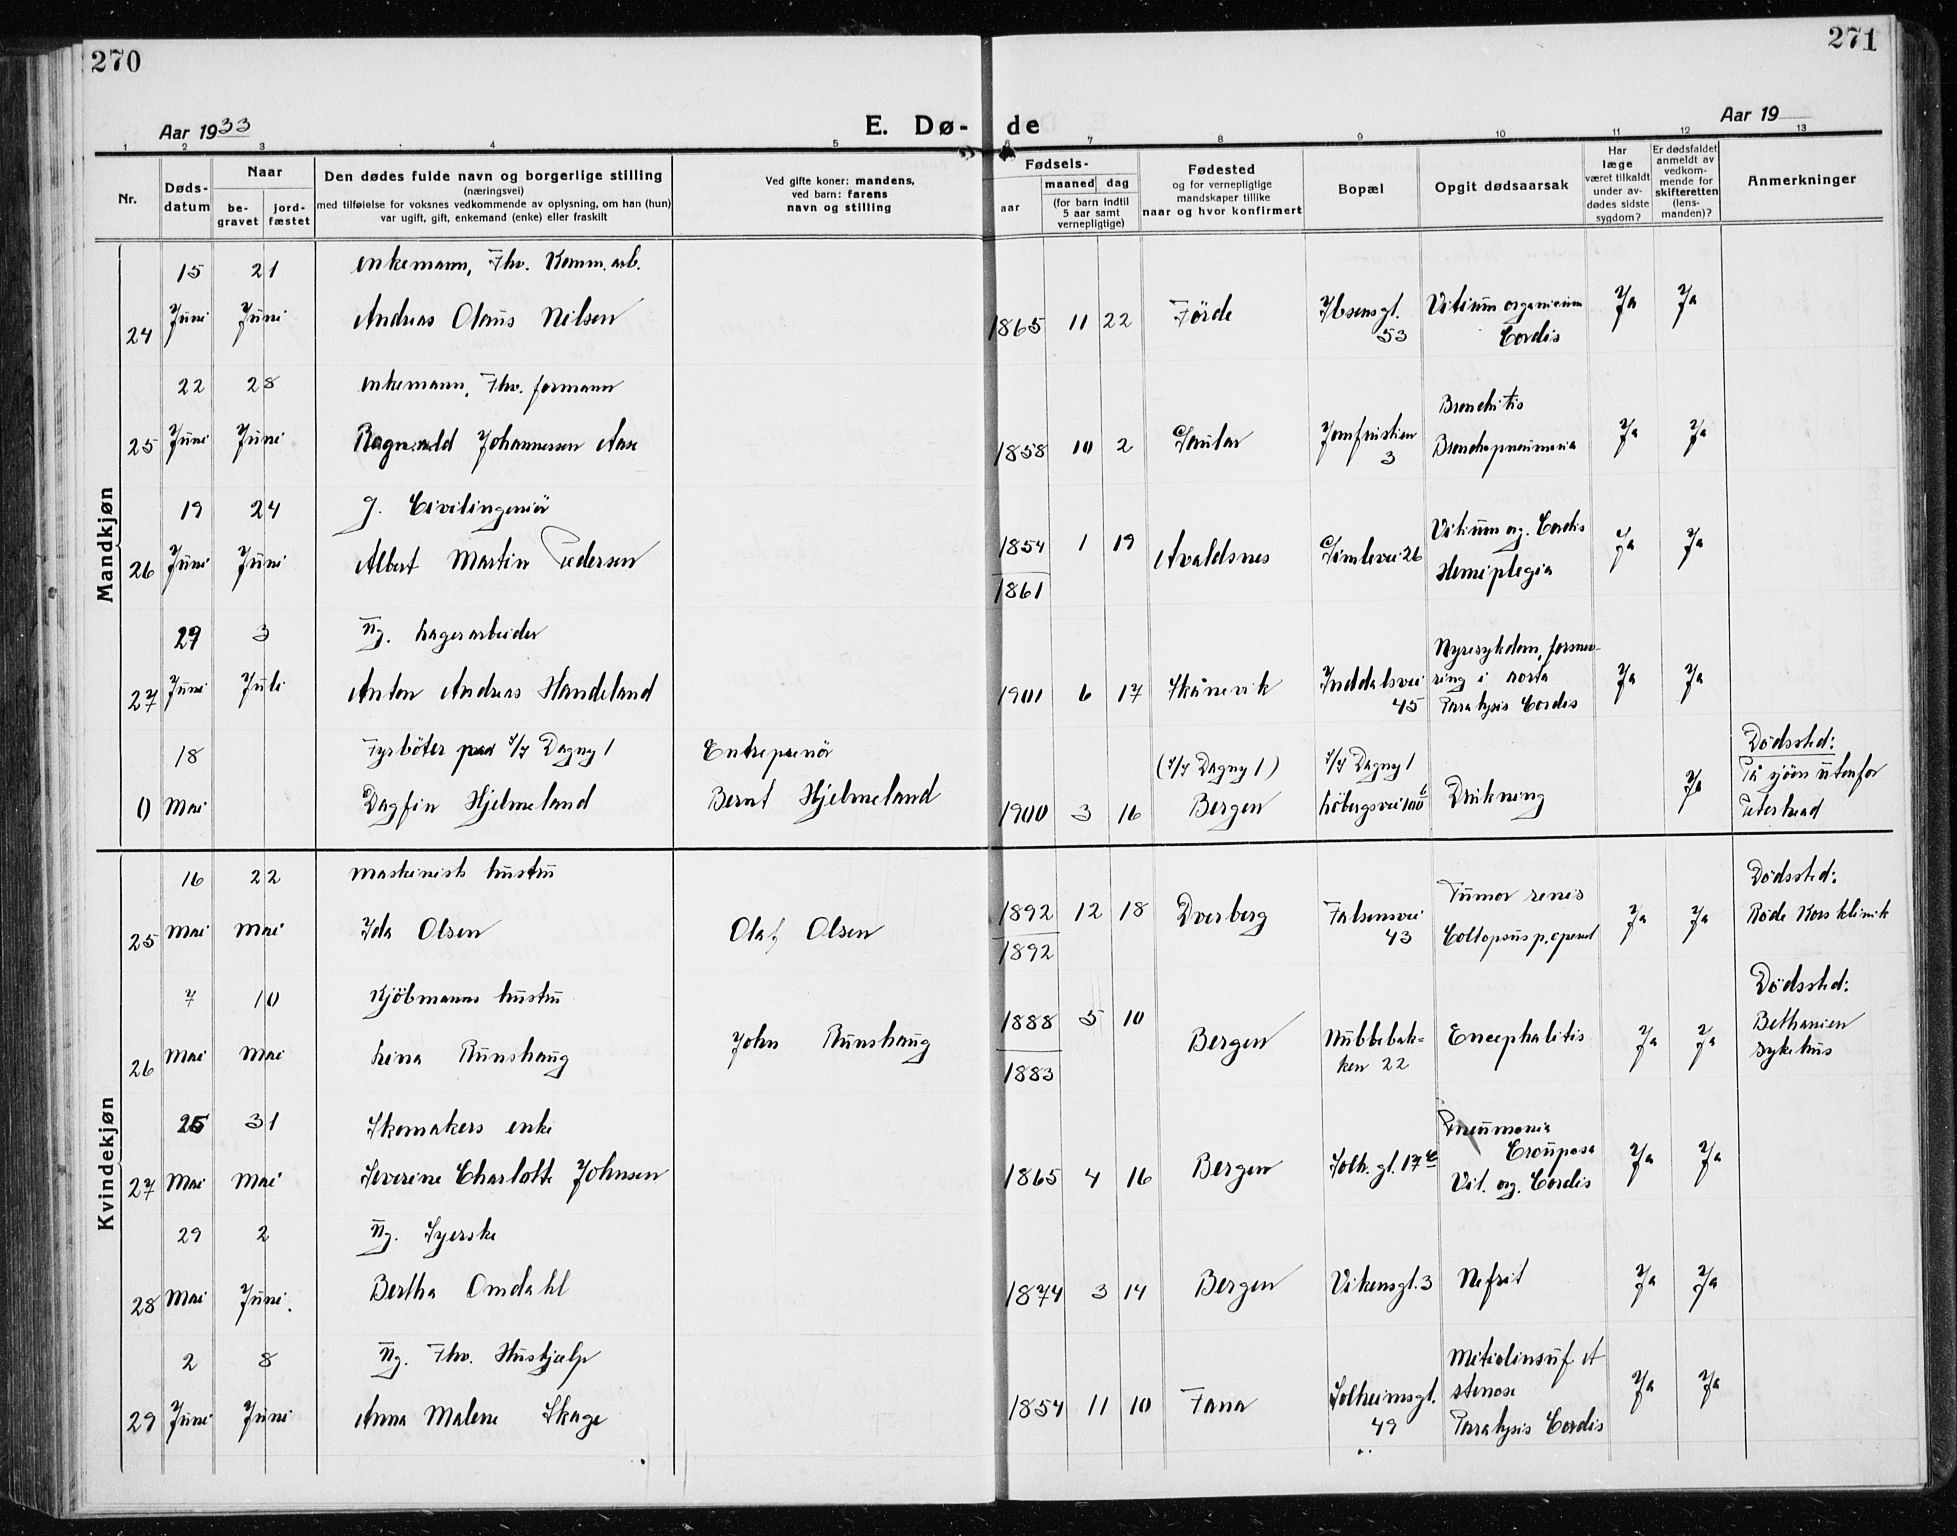 270
271
Aar 1933
E. Dø-de
Aar 19
1 2 3 4 5 6 7 8 9 10 11 12 13
Nr.
Døds-
datum
Naar
be-
gravet
jord-
fæstet
Den dødes fulde navn og borgerlige stilling
(næringsvei)
med tilføielse for voksnes vedkommende av oplysning, om han (hun)
var ugift, gift, enkemand (enke) eller fraskilt
Ved gifte koner: mandens,
ved barn: farens
navn og stilling
Fødsels-
aar
maaned dag
(for barn indtil
5 aar samt
vernepligtige)
Fødested
og for vernepligtige
mandskaper tillike
naar og hvor konfirmert
Bopæl
Opgit dødsaarsak
Har
læge
været tilkaldt
under av-
dødes sidste
sygdom?
Er dødsfaldet
anmeldt av
vedkom-
mende for
skifteretten
(lens-
manden)?
Anmerkninger
Mandkjøn
15 21 enkemann, Fhv. Komm. arb.
24 Juni Juni Andreas Olaus Nilsen 1865 11 22 Förde Ibsensgt. Vitium organicum Ja Ja
53 Cordis
22 28 enkemann, Fhv. formann Bronchitis
25 Juni Juni Ragnvald Johannessen Aase 1858 10 2 Gaular Jomfrustien Bronchopneumonia Ja Ja
3
19 24 g. Civilingeniör Vitium org. Cordis
26 Juni Juni Albert Martin Pedersen 1854 1 19 Avaldsnes Gimlevei 26 Hemiplegia Ja Ja
1861
29 3 Ug. Lagerarbeider Nyresykdom, forsnev-
27 Juni Juli Anton Andreas Handeland 1901 6 17 Skånevik Inddalsvei ring i aorta Ja Ja
45 Paralysis Cordis
18 Fyrböter paa S/S Dagny 1 Entreprenör (S/S Dagny 1) S/S Dagny 1 Dödssted:
På sjöen utenfor
0 Mai Dagfin Hjelmeland Bernt Hjelmeland 1900 3 16 Bergen Löbergsvei Drukning Ja Peterhead
Kvindekjøn
16 22 maskinists hustru Tumor renis Dödssted:
25 Mai Mai Ida Olsen Olaf Olsen 1892 12 18 Dverberg Falsensvei Collapsus p. operat Ja Ja Röde Kors klinik
1892 43
7 10 Kjöbmanns hustru Dödssted:
26 Mai Mai Lina Runshaug John Runshaug 1888 5 10 Bergen Nubbebak- Encephalitis Ja Ja Bethanien
1883 ken 22 sykehus
25 31 Skomakers enke Pneumonia
Crouposa
27 Mai Mai Severine Charlotte Johnsen 1865 4 16 Bergen Solh. gt. 17 Vit. org. Cordis Ja Ja
29 2 Ug. Syerske
28 Mai Juni. Bertha Omdahl 1874 3 14 Bergen Vikensgt. 3 Nefrit Ja Ja
2 8 Ug. Fhv. Hushjælp et
stenose
29 Juni Juni Anna Malene Skage 1854 11 10 Fana Solheimsgt. Paralysis Cordis Ja Ja
49